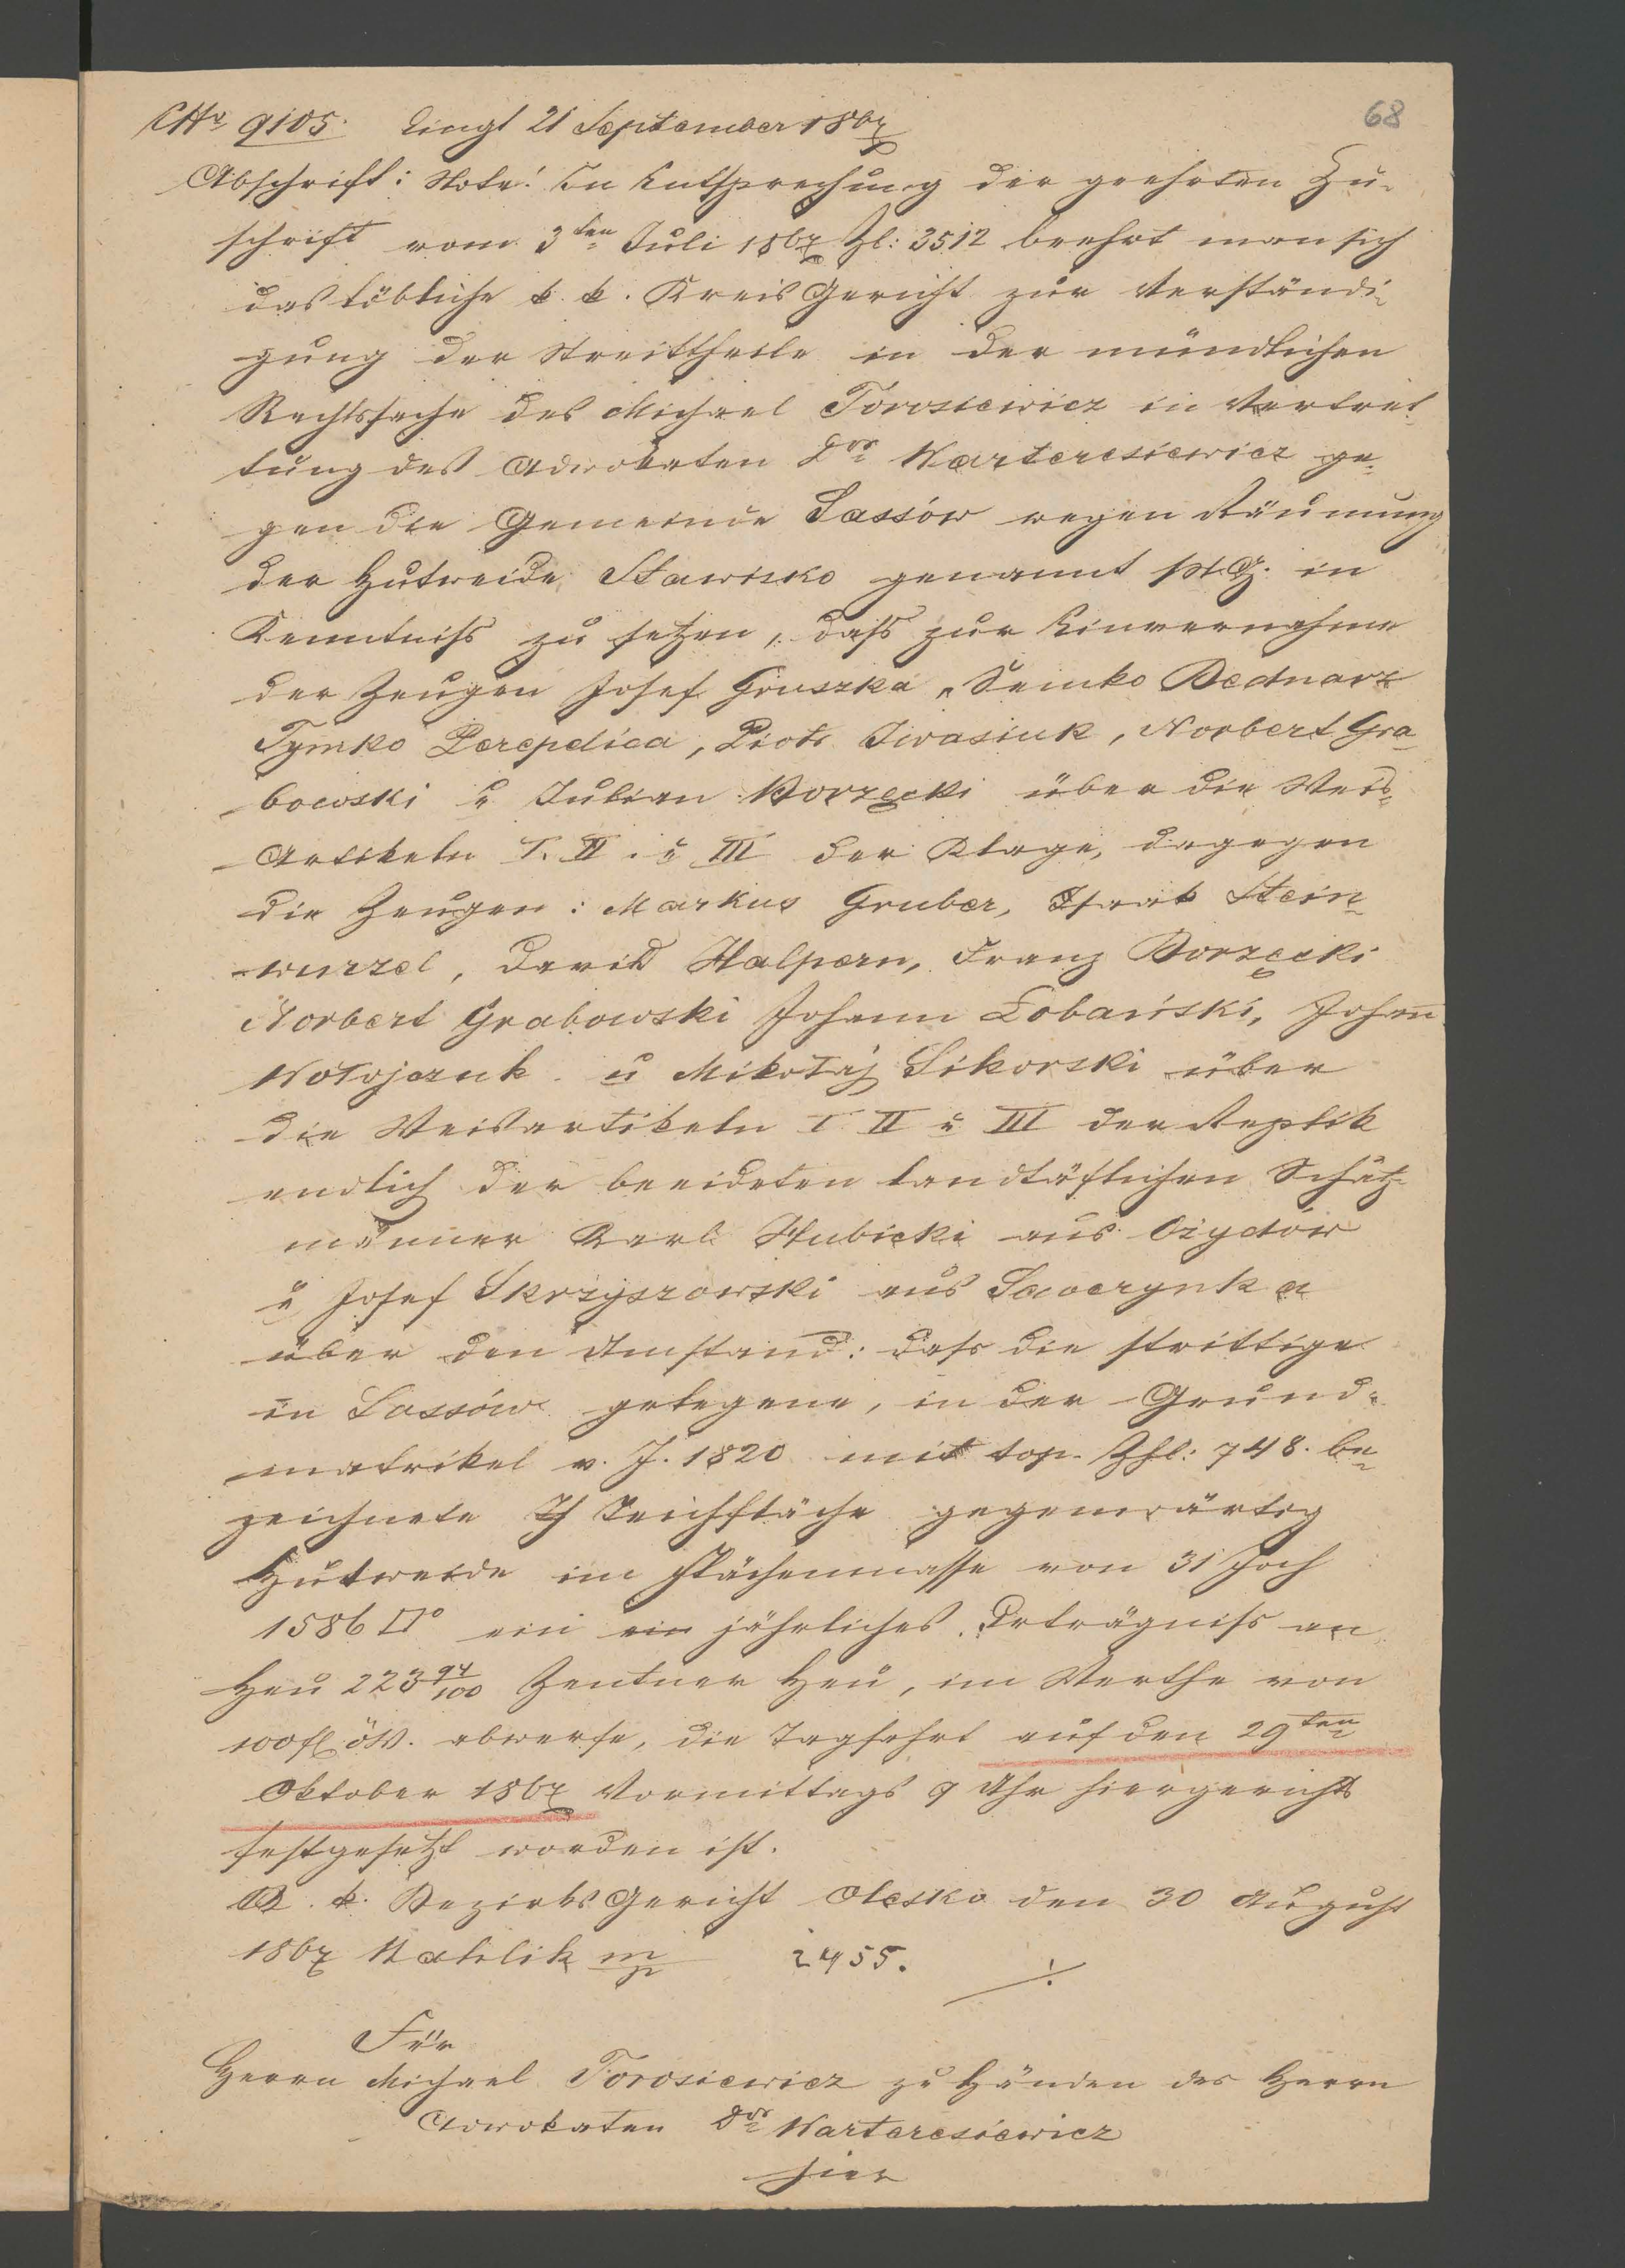 68
Nr 9105. Eingl 21 September 1867
Abschrift: Note! In Entsprechung der geehrten Zu-
schrift vom 3ten Juli 1867 Zl: 3512 beehrt man sich
das löbliche k. k. Kreis Gericht zur Verständi-
gung der Streittheile in der mündlichen
Rechtssache des Michael Torosiewicz in Vertret
tung des Advokaten Dor Warteresiewicz ge-
gen die Gemeinde Sassów wegen Räumung
der Hutweide Stawisko genannt in
Kenntniß zu setzen, daß zur Einvernahme
der Zeugen Josef Gruszka, Semko Bednarz
Tymko Perepelica, Piotr Iwasiuk, Norbert Gra-
bowski u Julian Borzęcki über die Weis-
Artikeln I. II. u III der Klage, dagegen
die Zeugen: Markus Gruber, Isaak Stein-
wurzel, David Halpern, Franz Borzęcki
Norbert Grabowski Johann Łobański, Johann
Wołojczuk u Mikołaj Sikorski über
die Weisartikeln I II u III der Replik
endlich der beeideten landtäflichen Schätz-
männer Karl Hubicki aus Ożydów
u Josef Skrzyszowski aus Sawczynka
über den Umstand: daß die strittige
in Sassów gelegene, in der Grund-
matrikel v. J. 1820 mit top. Zhl: 748. be-
zeichnete Teichfläche gegenwärtig
Hutweide im Flächenmasse von 31 Joch
1586 □° ein ein jährliches Erträgniß an
Heu 223 94/100 Zentner Heu, im Werthe von
100 fl öW. abwerfe, die Tagfahrt auf den 29ten
Oktober 1867 Vormittags 9 Uhr hiergerichts
festgesetzt worden ist.
K. k. Bezirks Gericht Olesko den 30 August
1867 Mahlik mp 2455. ./.
Für
Herrn Michael Torosiewicz zu Händen des Herrn
Advokaten Dor Warteresiewicz
hier